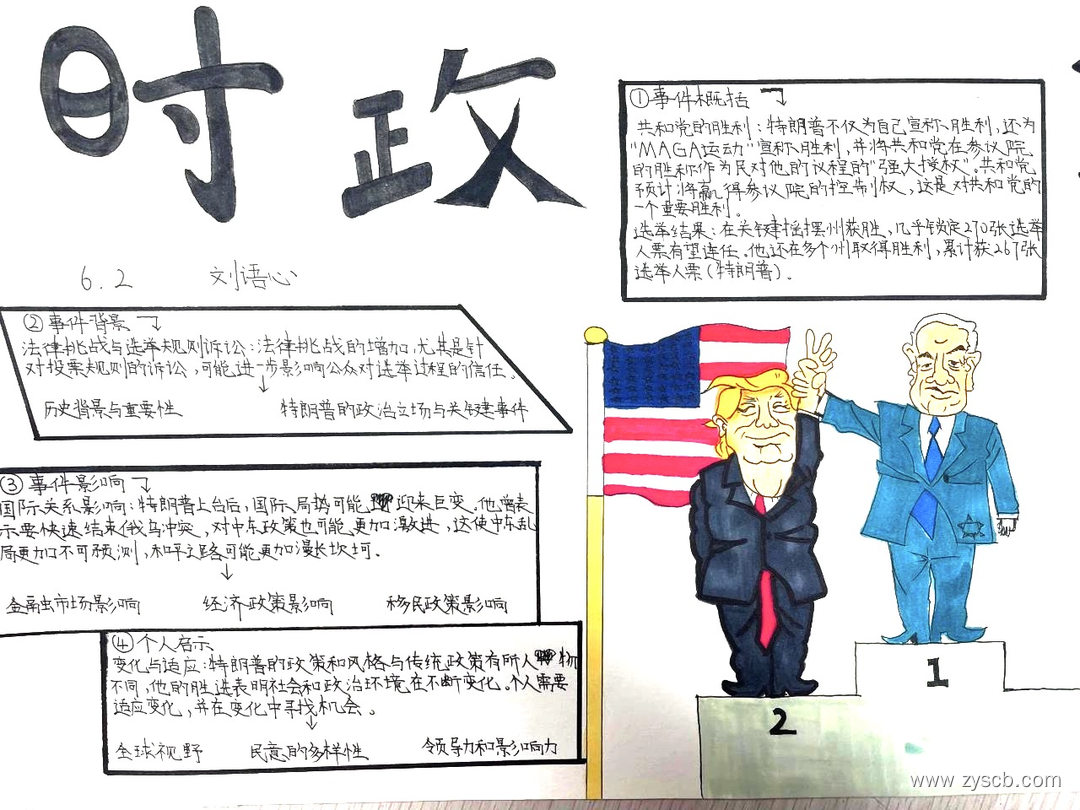 时政
6.2 刘语心
①事件概括
共和党的胜利：特朗普不仅为自己宣称胜利，还为
"MAGA运动"宣称胜利，并将共和党在参议院
的胜称作为民对他的议程的"强大授权"。共和党
预计将赢得参议院的控制权，这是对共和党的
一个重要胜利。
选举结果：在关键摇摆州获胜，几乎锁定270张选举
人票有望连任。他还在多个州取得胜利，累计获267张
选举人票（特朗普）.
②事件背景
法律挑战与选举规则诉讼：法律挑战的增加，尤其是针
对投票规则的诉讼，可能进一步影响公众对选举过程的信任。
历史背景与重要性 特朗普的政治立场与关键事件
③事件影响
国际关系影响：特朗普上台后，国际局势可能迎来巨变。他曾表
示要快速结束俄乌冲突，对中东政策也可能更加激进，这使中东乱
局更加不可预测，和平之路可能更加漫长坎坷。
金融市场影响 经济政策影响 移民政策影响
④个人启示
变化与适应：特朗普的政策和风格与传统政策有所人物
不同，他的胜选表明社会和政治环境在不断变化。个人需要
适应变化，并在变化中寻找机会。
全球视野 民意的多样性 领导力和影响力
1
2
www.zyscb.com